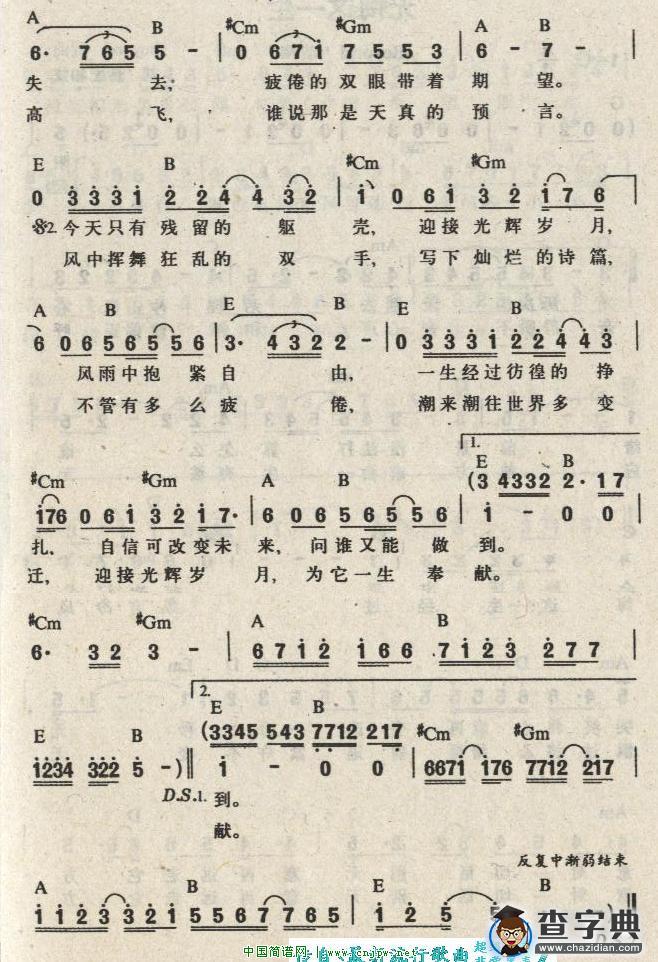 A B #Cm #Gm A B
6· 765 5 - | 0 671 7553 | 6 - 7 - |
失 去; 疲倦的双眼带着 期 望。
高 飞, 谁说那是天真的 预 言。
E B #Cm #Gm
0 3331 2 2 4 4 32 | 1 0 6 1 3 2 17 6 |
𝄋2. 今天只有 残留的 躯 壳, 迎接光辉岁 月,
风中挥舞 狂乱的 双 手, 写下灿烂的诗篇,
A B E E B
6 0 6 5 6 5 5 6 | 3· 432 2 - | 0 3331 2 2 4 4 3 |
风雨中抱 紧自 由, 一生经过彷徨的 挣
不管有多么疲 倦, 潮来潮往世界多 变
1.
#Cm #Gm A B E B
176 0 6 1 3 2 17· | 6 0 6 5 6 5 5 6 | (3 4332 2·17
1 - 0 0 |
扎, 自信可改变未 来, 问谁又能 做 到。
迁, 迎接光辉岁 月, 为它一生 奉 献。
#Cm #Gm A B
6· 3 2 3 - | 6712 166 7123 277 |
2.
E B E B #Cm #Gm
1234 322 5 -)‖ (3345 543 7712 217
1 - 0 0 | 6671 176 7712 217 |
D.S.1. 到。
献。
反复中渐弱结束
A B E B
1 1 2 3 3 2 1 5 6 7 7 6 5 | 1 2 5 5
查字典
www.chazidian.com
中国简谱网 www.cnjpw.net